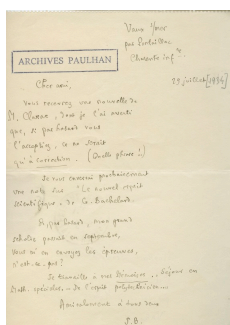 Vaux s/mer
par Pontaillac
Charente infre.
ARCHIVES PAULHAN
23 juillet [1934]
Cher ami,
Vous recevrez une nouvelle de
M. dont je l'ai averti
que, si par hasard vous
l'acceptiez, ce ne serait
qu'à correction. (Quelle phrase !)
Je vous enverrai prochainement
une note sur "Le nouvel esprit
scientifique" de G. Bachelard.
Si, par hasard, mon grand
paraît en septembre,
vous m'en envoyez les épreuves,
n'est-ce pas ?
Je travaille à mes
Math. spéciales, - De l'esprit
Amicalement à tous deux